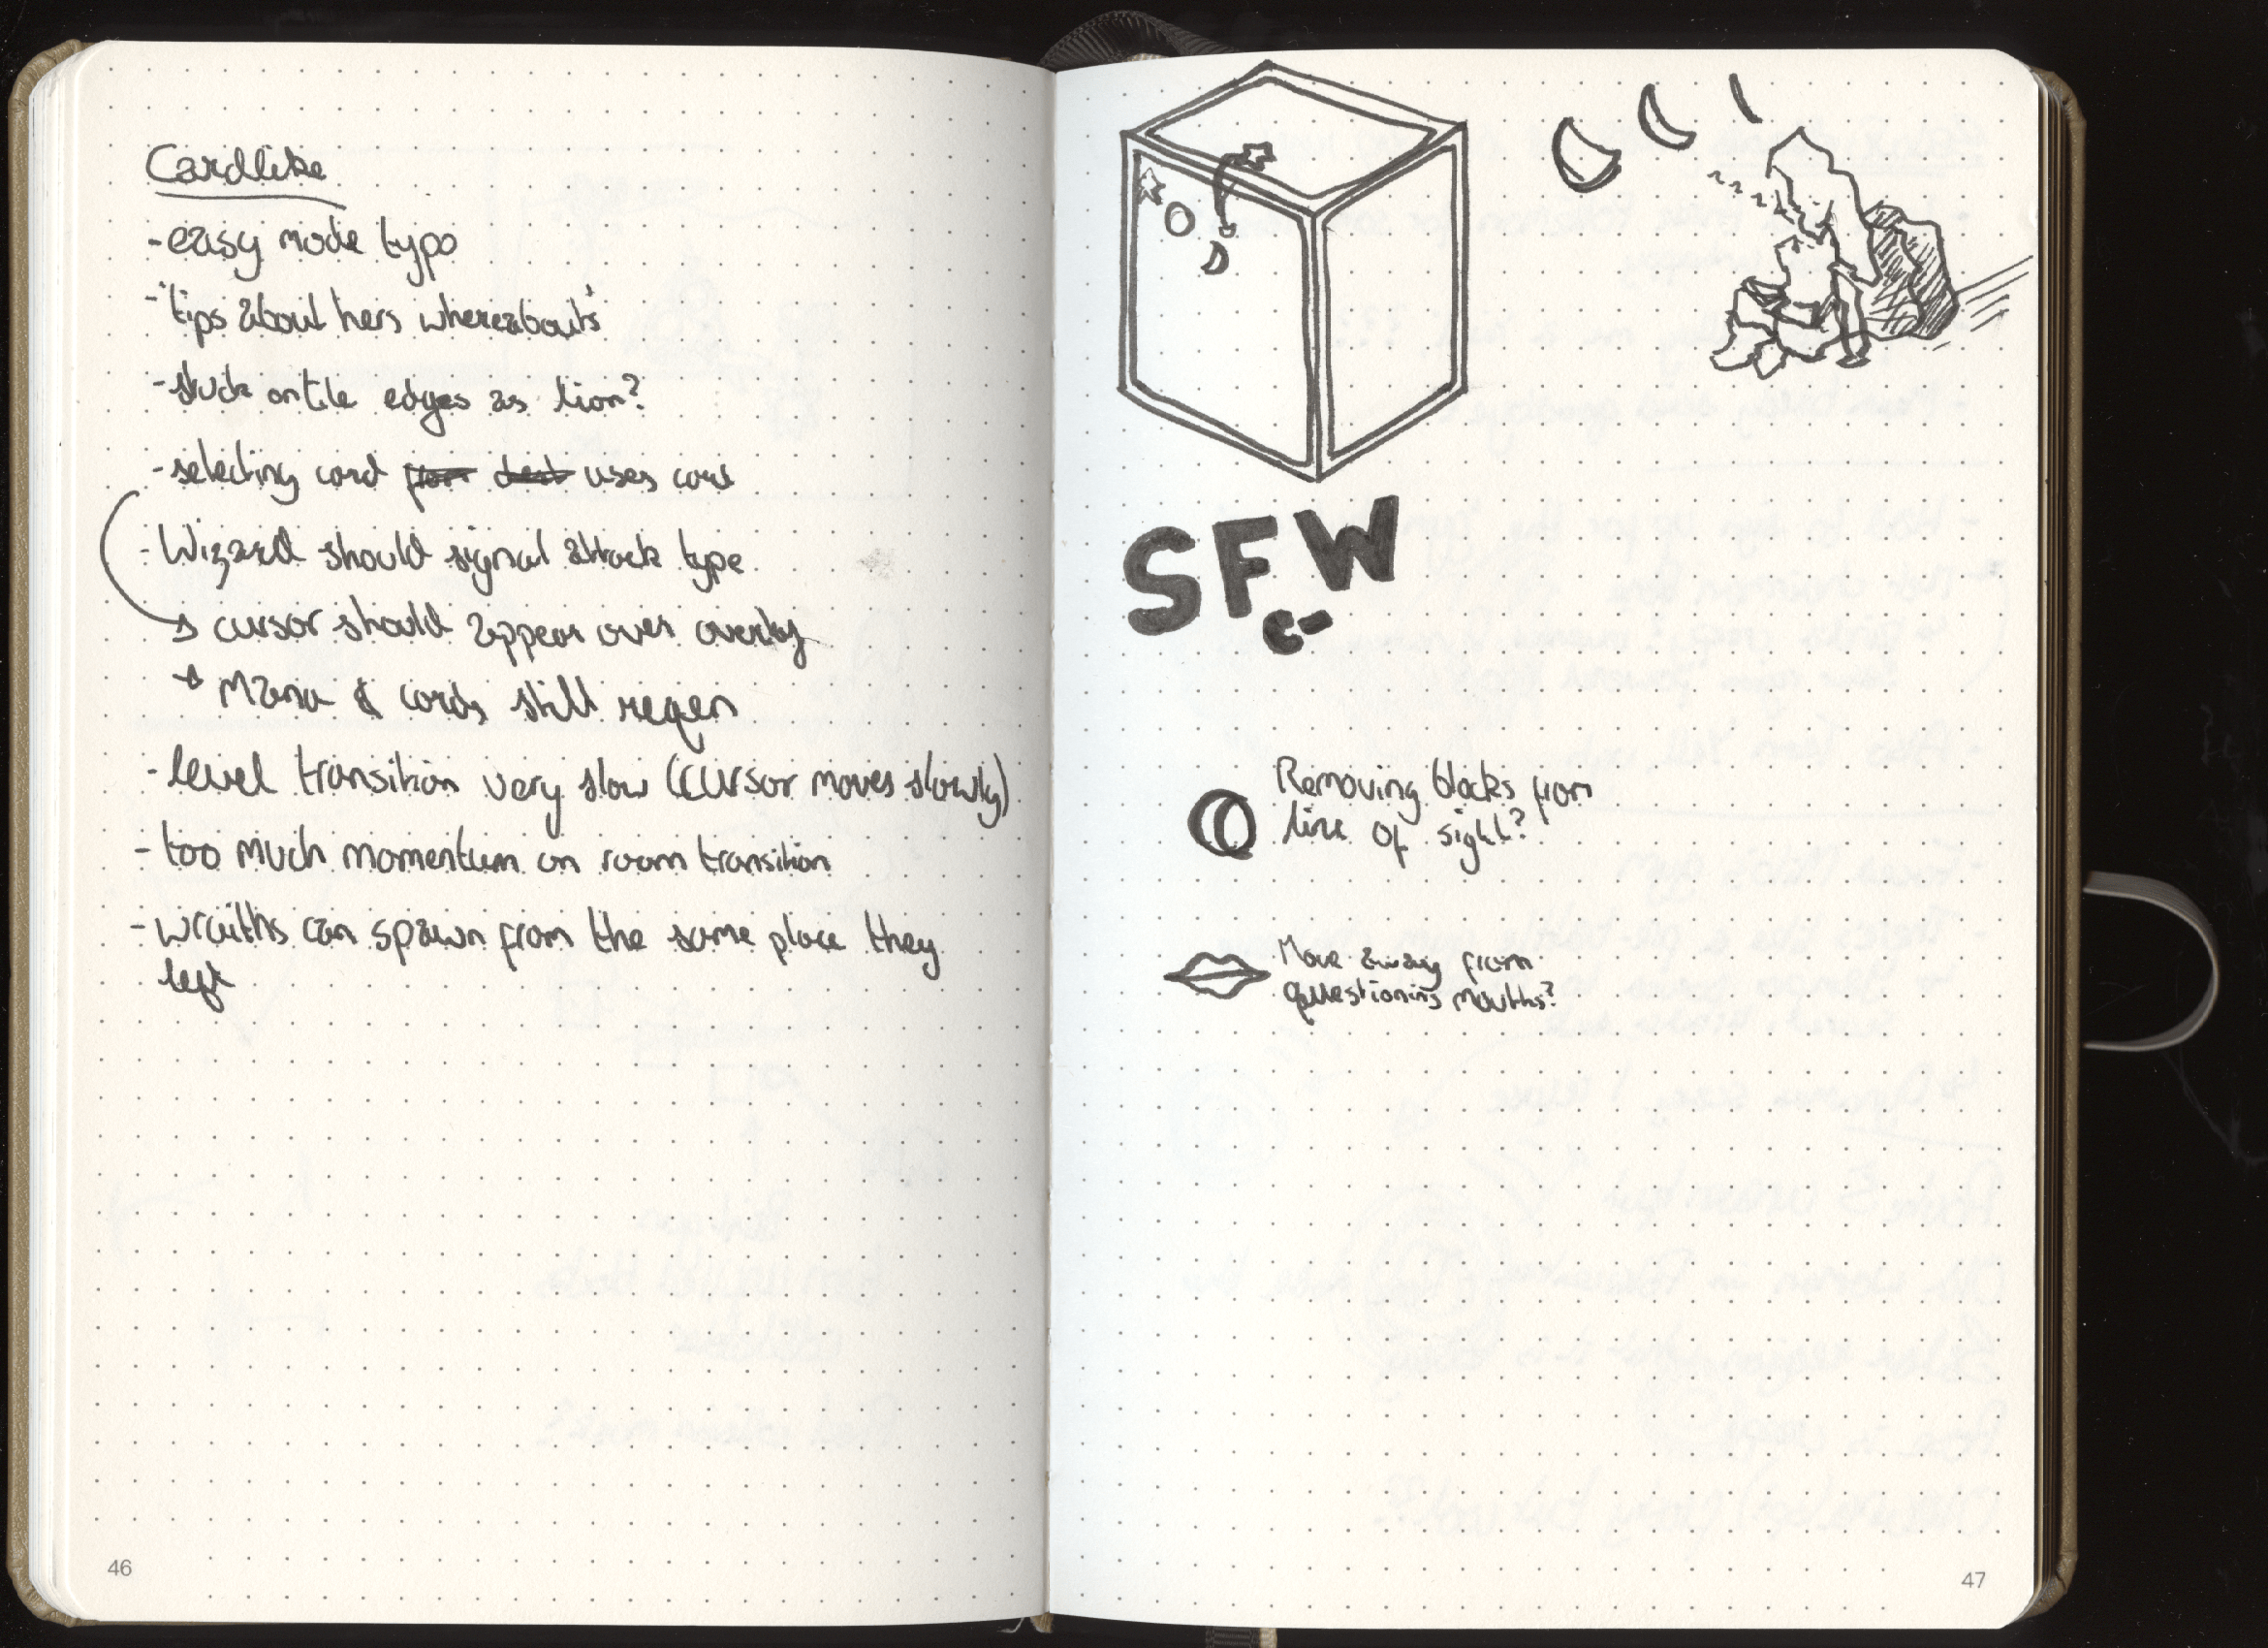 Cardlike
- easy mode typo
- 'tips about hers whereabouts'
- stuck on tile edges as lion?
- selecting card from deck uses card
- Wizard should signal attack type
→ cursor should appear over overlay
→ Mana & cards still regen
- level transition very slow (cursor moves slowly)
- too much momentum on room transition
- wraiths can spawn from the same place they
left
46
SFW
Removing blocks from
line of sight?
Move away from
questioning mouths?
47